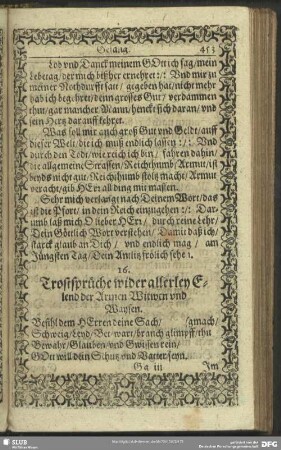 Gesang. 453
Lob vnd Danck meinem GOtt ich sag/mein
Lebetag/der mich bißher ernehret :/: Vnd mir zu
meiner Nothdurfft satt/ gegeben hat/nicht mehr
hab ich begehret/denn grosses Gut/ verdammen
thut/gar mancher Mann/henckt sich daran/vnd
sein Hertz darauff kehret.
Was soll mir auch groß Gut vnd Geldt/auff
dieser Welt/die ich muß endlich lassen :/: Vnd
durch den Todt/wie reich ich bin/fahren dahin/
die allgemeine Strassen/Reichthumb/Armut/ist
beyds nicht gut/Reichthumb stoltz macht/Armut
veracht/gib HErr all ding mit massen.
Sehr mich verlangt nach Deinem Wort/das
ist die Pfort/in dein Reich einzugehen :/: Dar-
umb laß mich O lieber HErr/durch reine Lehr/
Dein Göttlich Wort verstehen/ Damit daß ich/
starck glaub an Dich/ vnd endlich mag/ am
Jüngsten Tag/Dein Antlitz frölich sehen.
16.
Trostsprüche wider allerley E-
lend der Armen Witwen vnd
Waysen.
Befihl dem HErren deine Sach/ (gmach/
Schweig/Leyd/Bet/wart/brauch glimpff/thu
Bewahr/Glauben vnd Gwissen rein/
GOtt will dein Schutz vnd Vatter seyn.
Gg iii Im
SLUB
DFG